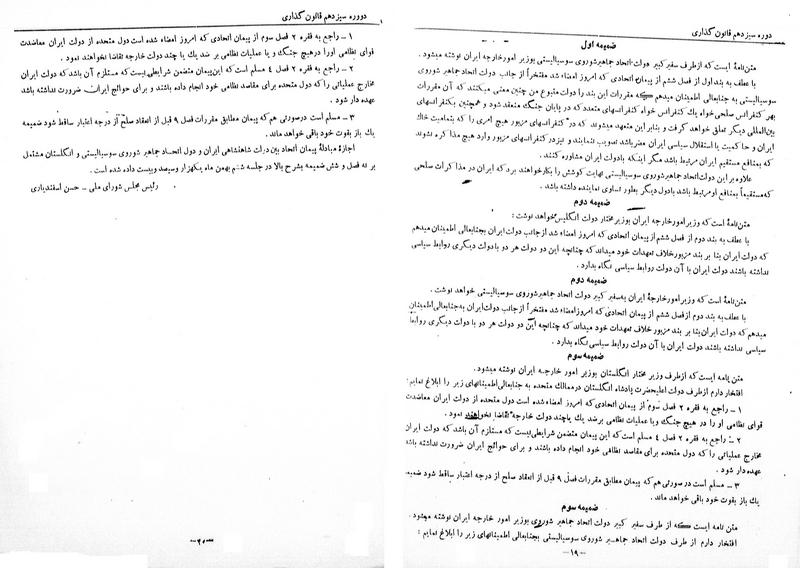 دوره سیزدهم قانون گذاری
ضمیمه اول
متن نامهٔ ایست که از طرف سفیر کبیر دولت اتحاد جماهیر شوروی سوسیالیستی بوزیر امور خارجه ایران نوشته میشود .
با عطف به بند اول از فصل ششم از پیمان اتحادی که امروز امضاء شد مفتخراً از جانب دولت اتحاد جماهیر شوروی
سوسیالیستی به جنابعالی اطمینان میدهم که مقررات این بند را دولت متبوع من چنین معنی میکند که آن مقررات
بهر کنفرانس صلحی خواه یك کنفرانس خواه کنفرانسهای متعدد که در پایان جنگ منعقد شود و همچنین بکنفرانسهای
بین‌المللی دیگر تعلق خواهد گرفت و بنابر این متعهد میشوند که در کنفرانسهای مزبور هیچ امری را که بتمامیت خاك
ایران و حاکمیت یا استقلال سیاسی ایران مضر باشد تصویب ننمایند و نیز در کنفرانسهای مزبور وارد هیچ مذاکره نشوند
که بمنافع مستقیم ایران مرتبط باشد مگر اینکه بادولت ایران مشاوره کنند .
علاوه بر این دولت اتحاد جماهیر شوروی سوسیالیستی نهایت کوشش را بکار خواهند برد که ایران در مذاکرات صلحی
که مستقیماً بمنافع او مرتبط باشد بادول دیگر بطور تساوی نماینده داشته باشد .
ضمیمه دوم
متن نامهٔ است که وزیر امور خارجه ایران بوزیر مختار دولت انگلیس خواهد نوشت :
با عطف به بند دوم از فصل ششم از پیمان اتحادی که امروز امضاء شد از جانب دولت ایران بجنابعالی اطمینان میدهم
که دولت ایران بنا بر بند مزبور خلاف تعهدات خود میداند که چنانچه این دو دولت هر دو با دولت دیگری روابط سیاسی
نداشته باشند دولت ایران با آن دولت روابط سیاسی نگاه بدارد .
ضمیمه دوم
متن نامهٔ است که وزیر امور خارجهٔ ایران به سفیر کبیر دولت اتحاد جماهیر شوروی سوسیالیستی خواهد نوشت .
با عطف به بند دوم از فصل ششم از پیمان اتحادی که امروز امضاء شد مفتخراً از جانب دولت ایران به جنابعالی اطمینان
میدهم که دولت ایران بنا بر بند مزبور خلاف تعهدات خود میداند که چنانچه این دو دولت هر دو با دولت دیگری روابط
سیاسی نداشته باشند دولت ایران با آن دولت روابط سیاسی نگاه بدارد .
ضمیمه سوم
متن نامه ایست که از طرف وزیر مختار انگلستان بوزیر امور خارجه ایران نوشته میشود .
افتخار دارم از طرف دولت اعلیحضرت پادشاه انگلستان در ممالك متحده به جنابعالی اطمینانهای زیر را ابلاغ نمایم :
۱ - راجع به فقره ۲ فصل سوم از پیمان اتحادی که امروز امضاء شده است دول متحده از دولت ایران معاضدت
قوای نظامی او را در هیچ جنگ و یا عملیات نظامی بر ضد یك یا چند دولت خارجه تقاضا نخواهند نمود .
۲ - راجع به فقره ۲ فصل ٤ مسلم است که این پیمان متضمن شرایطی نیست که مستلزم آن باشد که دولت ایران
مخارج عملیاتی را که دول متحده برای مقاصد نظامی خود انجام داده باشند و برای حوائج ایران ضرورت نداشته باشد
عهده دار شود .
۳ - مسلم است در صورتی هم که پیمان مطابق مقررات فصل ۹ قبل از انعقاد صلح از درجه اعتبار ساقط شود ضمیمه
یك باز بقوت خود باقی خواهد ماند .
ضمیمه سوم
متن نامه ایست که از طرف سفیر کبیر دولت اتحاد جماهیر شوروی بوزیر امور خارجه ایران نوشته میشود .
افتخار دارم از طرف دولت اتحاد جماهیر شوروی سوسیالیستی بجنابعالی اطمینانهای زیر را ابلاغ نمایم :
- ۱۹ -
دوره سیزدهم قانون گذاری
۱ - راجع به فقره ۲ فصل سوم از پیمان اتحادی که امروز امضاء شده است دول متحده از دولت ایران معاضدت
قوای نظامی او را در هیچ جنگ و یا عملیات نظامی بر ضد یك یا چند دولت خارجه تقاضا نخواهند نمود .
۲ - راجع به فقره ۲ فصل ٤ مسلم است که این پیمان متضمن شرایطی نیست که مستلزم آن باشد که دولت ایران
مخارج عملیاتی را که دول متحده برای مقاصد نظامی خود انجام داده باشند و برای حوائج ایران ضرورت نداشته باشد
عهده دار شود .
۳ - مسلم است در صورتی هم که پیمان مطابق مقررات فصل ۹ قبل از انعقاد صلح از درجه اعتبار ساقط شود ضمیمه
یك باز بقوت خود باقی خواهد ماند .
اجازهٔ مبادلهٔ پیمان اتحاد بین دولت شاهنشاهی ایران و دول اتحاد جماهیر شوروی سوسیالیستی و انگلستان مشتمل
بر نه فصل و شش ضمیمه بشرح بالا در جلسه ششم بهمن ماه یکهزار و سیصد و بیست داده شده است .
رئیس مجلس شورای ملی - حسن اسفندیاری
- ۲۰ -